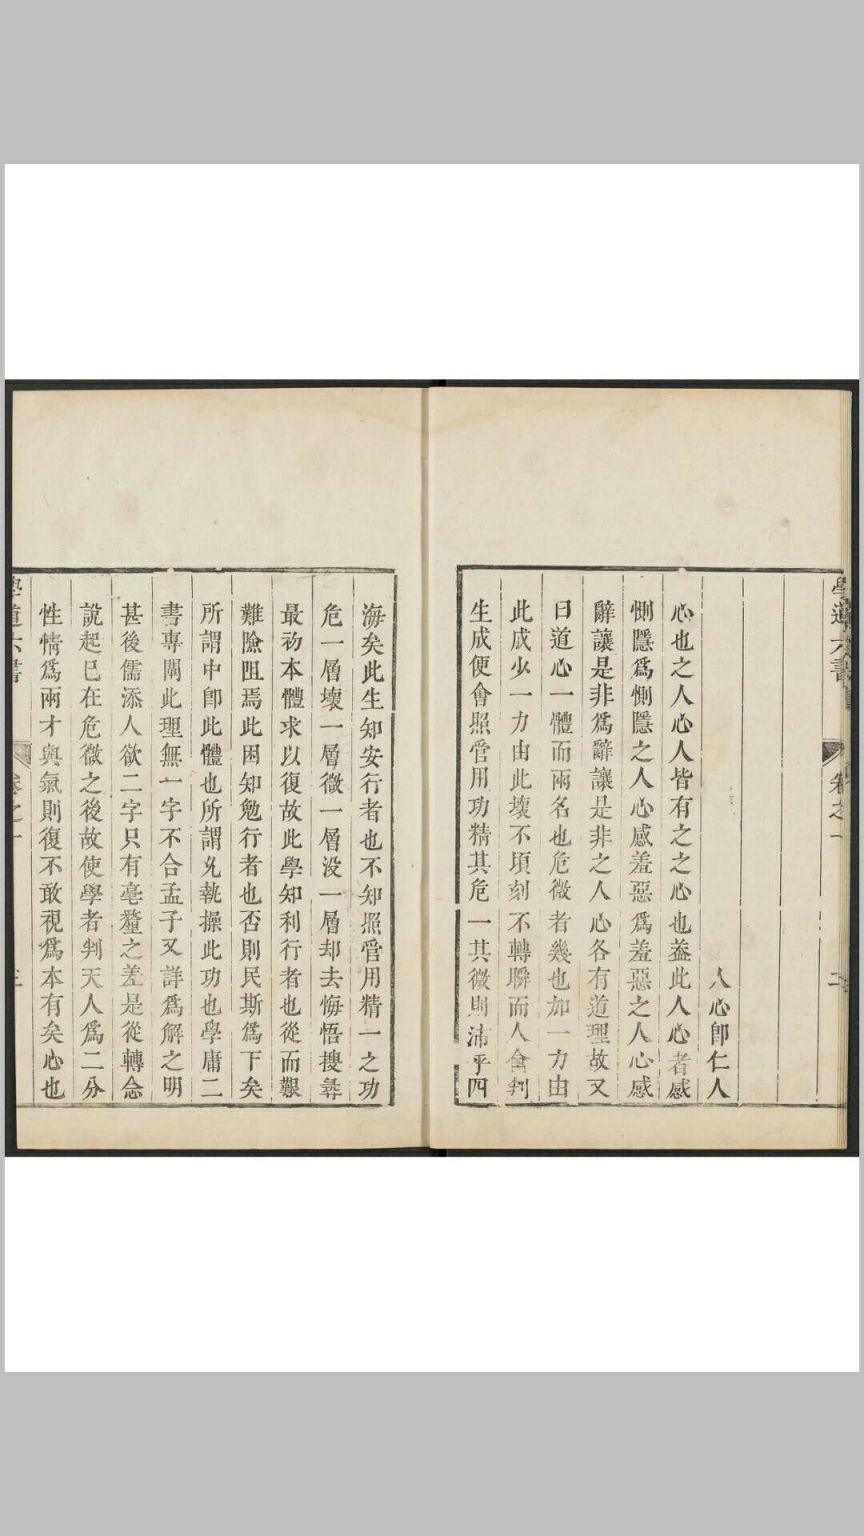 學道六書 卷之一 二
人心即仁人
心也之人心人皆有之之心也葢此人心者感
惻隱爲惻隱之人心感羞惡爲羞惡之人心感
辭讓是非爲辭讓是非之人心各有道理故又
曰道心一體而兩名也危微者幾也加一力由
此成少一力由此壞不頃刻不轉瞬而人禽判
生成便會照管用功精其危一其微則沛乎四
海矣此生知安行者也不知照管用精一之功
危一層壞一層微一層没一層却去悔悟搜尋
最初本體求以復故此學知利行者也從而艱
難險阻焉此困知勉行者也否則民斯爲下矣
所謂中卽此體也所謂允執操此功也學庸二
書專闡此理無一字不合孟子又詳爲解之明
甚後儒添人欲二字只有毫釐之差是從轉念
說起已在危微之後故使學者判天人爲二分
性情爲兩才與氣則復不敢視爲本有矣心也
學道六書 卷之一